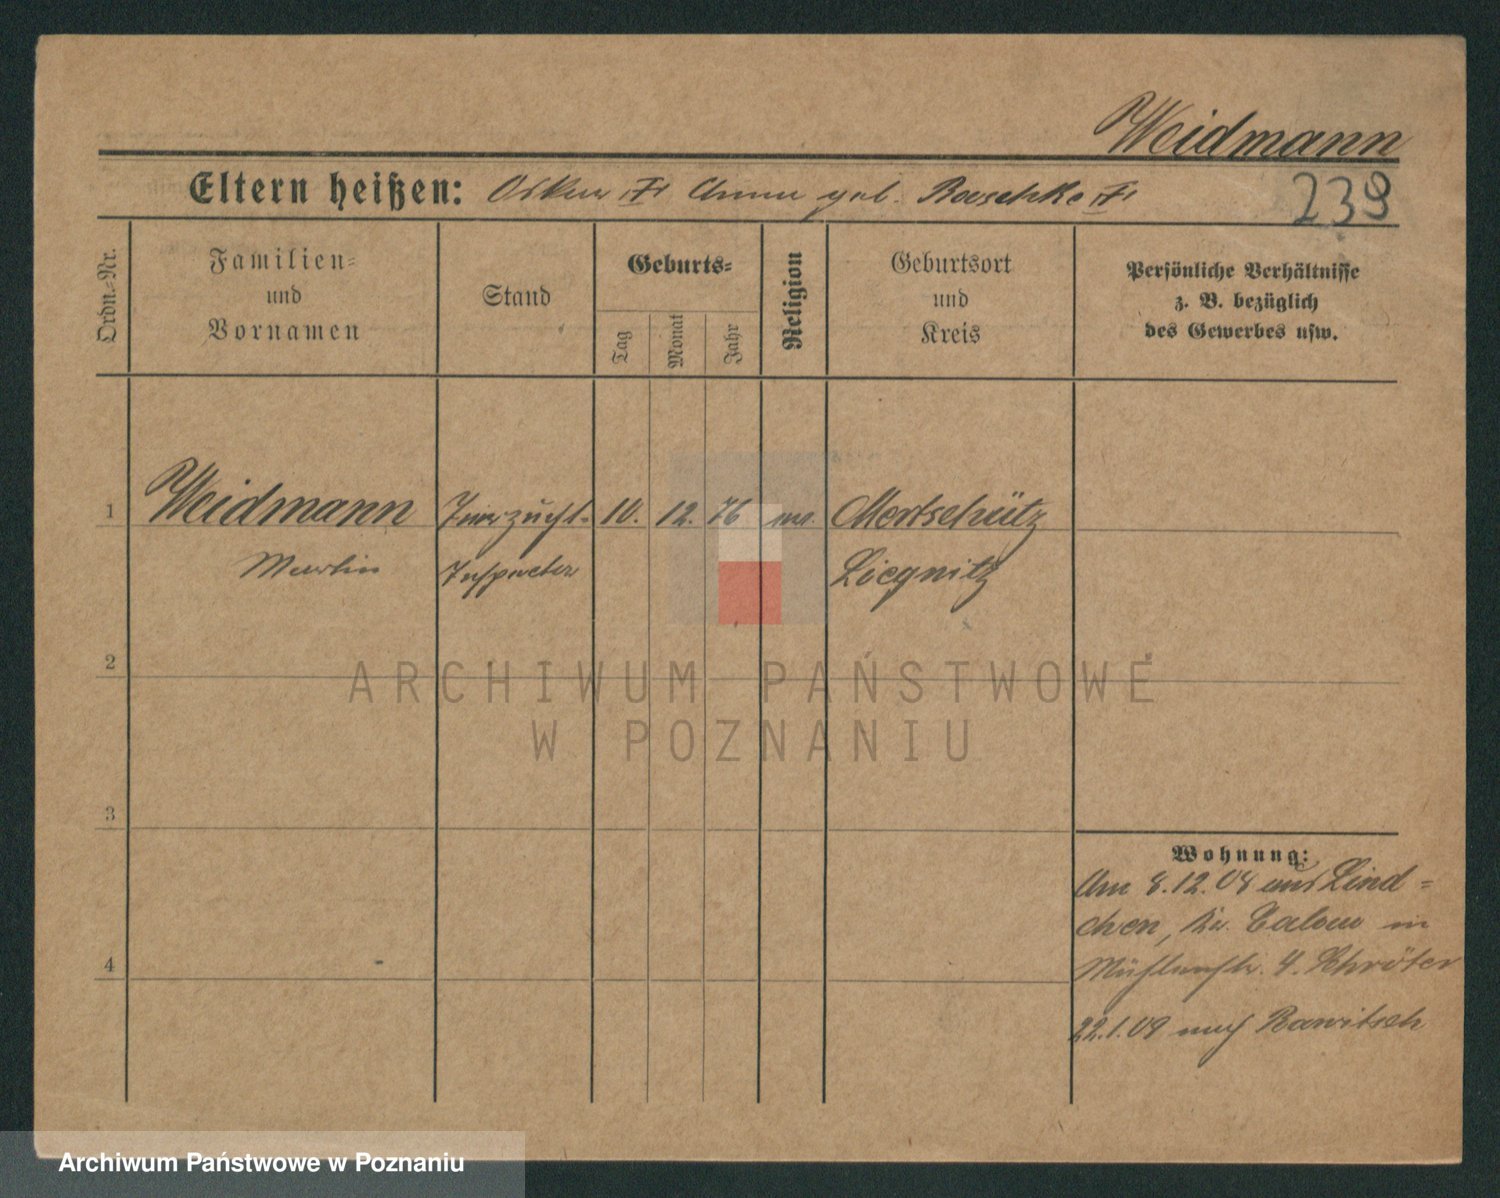 Weidmann
Eltern heißen: Oskar Anna geb. Raeschke
239
Ordn.-Nr.
Familien-
und
Vornamen
Stand
Geburts-
Tag
Monat
Jahr
Religion
Geburtsort
und
Kreis
Persönliche Verhältnisse
z. B. bezüglich
des Gewerbes usw.
1 Weidmann Tierzucht- 10. 12. 76 Mertschütz
Martin Inspector Liegnitz
2
3
4
Wohnung:
Am 8.12.08 aus Lind-
chen, Kr. Calau in
Mühlenstr. 4. Schröter
22.1.09 nach Rawitsch
ARCHIWUM PAŃSTWOWE
W POZNANIU
Archiwum Państwowe w Poznaniu